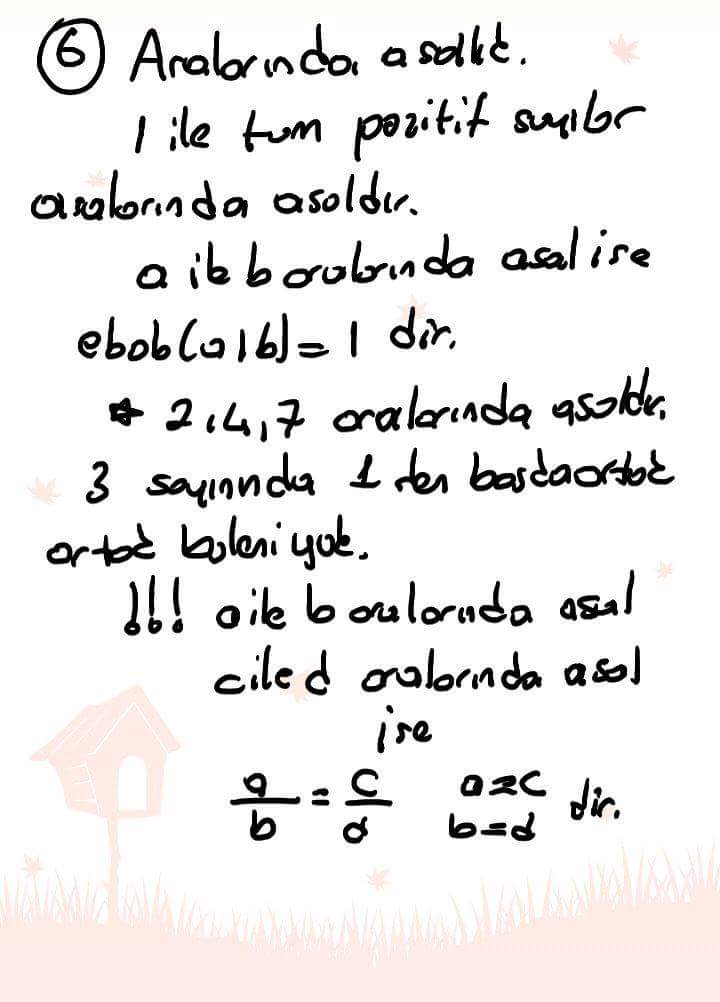 ⑥ Aralarında asallık.
1 ile tüm pozitif sayılar
aralarında asaldır.
a ile b aralarında asal ise
ebob(a,b)=1 dir.
* 2,4,7 aralarında asaldır.
3 sayınında 1 den başka ortak
ortak böleni yok.
!!! a ile b aralarında asal
c ile d aralarında asal
ise
a/b = c/d a=c
b=d dir.